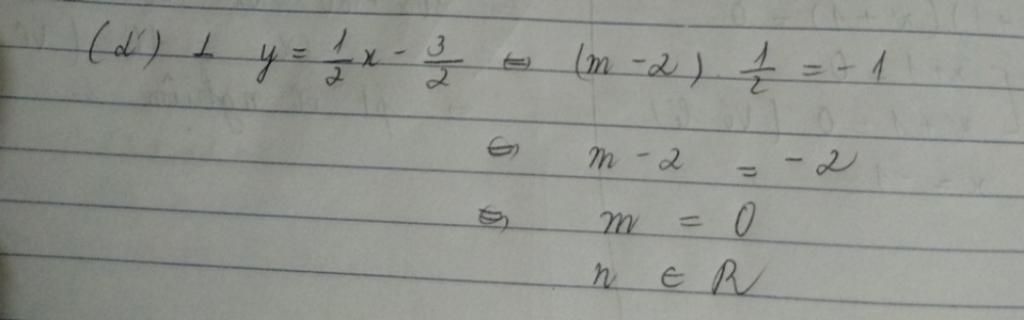 (d) ⊥ y = 1/2 x - 3/2 ⇔ (m - 2) . 1/2 = - 1
⇔ m - 2 = - 2
⇔ m = 0
n ∈ R